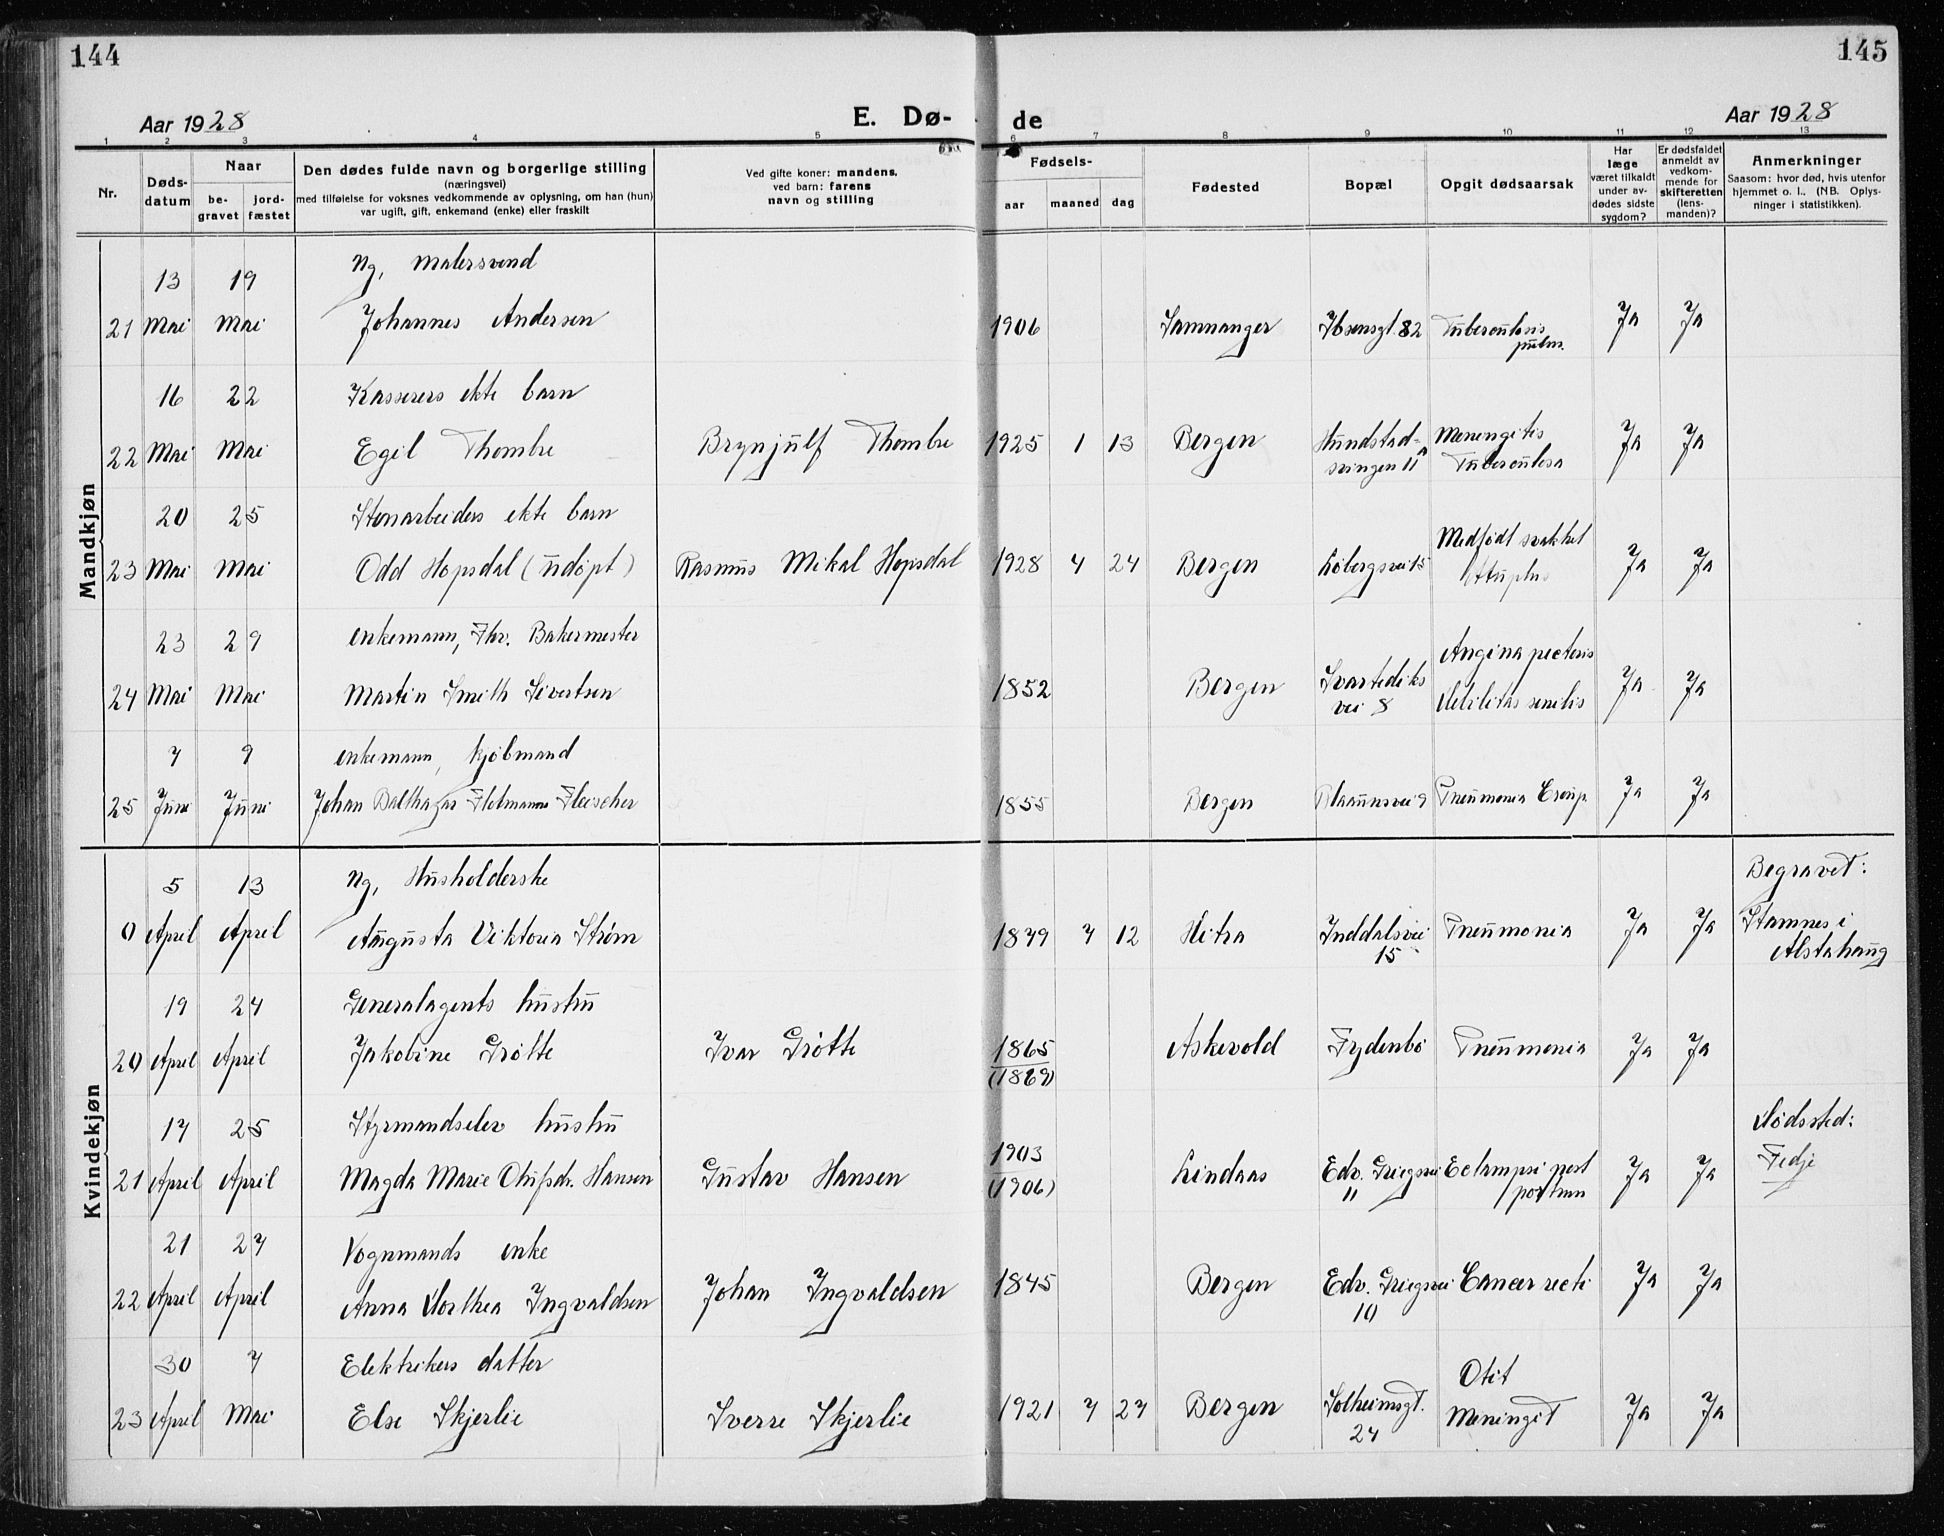 144
145
Aar 1928
E. Dø-
de
Aar 1928
1 2 3 4 5 6 7 8 9 10 11 12 13
Nr.
Døds-
datum
Naar
be-
gravet
jord-
fæstet
Den dødes fulde navn og borgerlige stilling
(næringsvei)
med tilføielse for voksnes vedkommende av oplysning, om han (hun)
var ugift, gift, enkemand (enke) eller fraskilt
Ved gifte koner: mandens,
ved barn: farens
navn og stilling
Fødsels-
aar
maaned
dag
Fødested
Bopæl
Opgit dødsaarsak
Har
læge
været tilkaldt
under av-
dødes sidste
sygdom?
Er dødsfaldet
anmeldt av
vedkom-
mende for
skifteretten
(lens-
manden)?
Anmerkninger
Saasom: hvor død, hvis utenfor
hjemmet o. l., (NB. Oplys-
ninger i statistikken).
Mandkjøn
13 19 Ug, Malersvend
21 Mai Mai Johannes Andersen 1906 Samnanger Ibsensgt. 82 Tuberculosis Ja Ja
pulm.
16 22 Kasserers ekte barn
22 Mai Mai Egil Thombre Brynjulf Thombre 1925 1 13 Bergen Hundstad- Meningitis Ja Ja
svingen 11A Tuberculosa
20 25 Stenarbeiders ekte barn Medfødt svakhet
23 Mai Mai Odd Hopsdal (udöpt) Rasmus Mikal Hopsdal 1928 4 24 Bergen Løbergsvei 15 Ja Ja
23 29 enkemann, Fhv. Bakermester Angina pectoris
24 Mai Mai Martin Smith Sivertsen 1852 Bergen Svartediks Debilitas senilis Ja Ja
vei 8
7 9 enkemann, kjøbmand
25 Juni Juni Johan Balthazar Flotmann Fleischer 1855 Bergen Blaauwsvei 9 Pneumonia Croup. Ja Ja
Kvindekjøn
5 13 Ug, Husholderske Begravet:
0 April April Augusta Viktoria Strøm 1879 7 12 Hitra Inddalsvei Pneumonia Ja Ja Stamnes i
15 Alstahaug
19 24 Generalagents hustru
20 April April Jakobine Grötte Ivar Grötte 1865 Askevold Frydenbö Pneumonia Ja Ja
(1869)
17 25 Styrmandselev hustru Dødssted:
21 April April Magda Marie Olufsdr. Hansen Gustav Hansen 1903 Lindaas Edv. Griegsvei Eclampsi post Ja Ja Fedje
(1906) 11 partum
21 27 Vognmands enke
22 April April Anna Dorthea Ingvaldsen Johan Ingvaldsen 1845 Bergen Edv. Griegsvei Cancer recti Ja Ja
10
30 7 Elektrikers datter Otit
23 April Mai Else Skjerlie Sverre Skjerlie 1921 7 27 Bergen Solheimsgt. Meningit Ja Ja
24